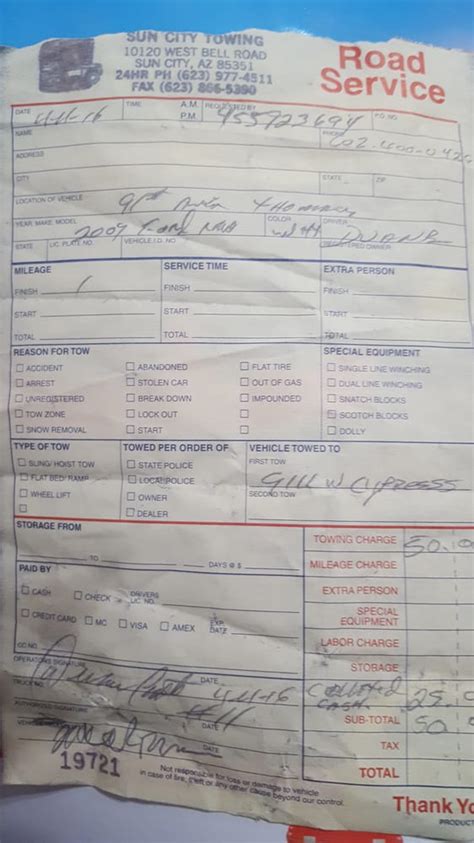 SUN CITY TOWING
10120 WEST BELL ROAD
SUN CITY, AZ 85351
24HR PH (623) 977-4511
FAX (623) 866-5390
Road
Service
DATE TIME A.M. P.M. REQUESTED BY P.O. NO.
NAME PHONE
ADDRESS
CITY STATE ZIP
LOCATION OF VEHICLE
YEAR, MAKE, MODEL COLOR DRIVER
2009 Ford DUANE
STATE LIC. PLATE NO. VEHICLE I.D. NO. REGISTERED OWNER
MILEAGE SERVICE TIME EXTRA PERSON
FINISH FINISH FINISH
START START START
TOTAL TOTAL TOTAL
REASON FOR TOW SPECIAL EQUIPMENT
ACCIDENT ABANDONED FLAT TIRE SINGLE LINE WINCHING
ARREST STOLEN CAR OUT OF GAS DUAL LINE WINCHING
UNREGISTERED BREAK DOWN IMPOUNDED SNATCH BLOCKS
TOW ZONE LOCK OUT SCOTCH BLOCKS
SNOW REMOVAL START DOLLY
TYPE OF TOW TOWED PER ORDER OF VEHICLE TOWED TO
SLING/ HOIST TOW STATE POLICE FIRST TOW
FLAT BED/ RAMP LOCAL POLICE 9111 W CYPRESS
WHEEL LIFT OWNER SECOND TOW
DEALER
STORAGE FROM TOWING CHARGE 50.
TO DAYS @ $ MILEAGE CHARGE
PAID BY EXTRA PERSON
CASH CHECK DRIVERS LIC. NO. SPECIAL EQUIPMENT
CREDIT CARD MC VISA AMEX EXP. DATE LABOR CHARGE
CC NO. STORAGE
OPERATORS SIGNATURE DATE 4-4-16 Collected Cash 25.
TRUCK NO. SUB-TOTAL 50
AUTHORIZED SIGNATURE DATE
TAX
DATE
TOTAL
19721
Not responsible for loss or damage to vehicle
in case of fire, theft or any other cause beyond our control.
Thank
PRODUCT